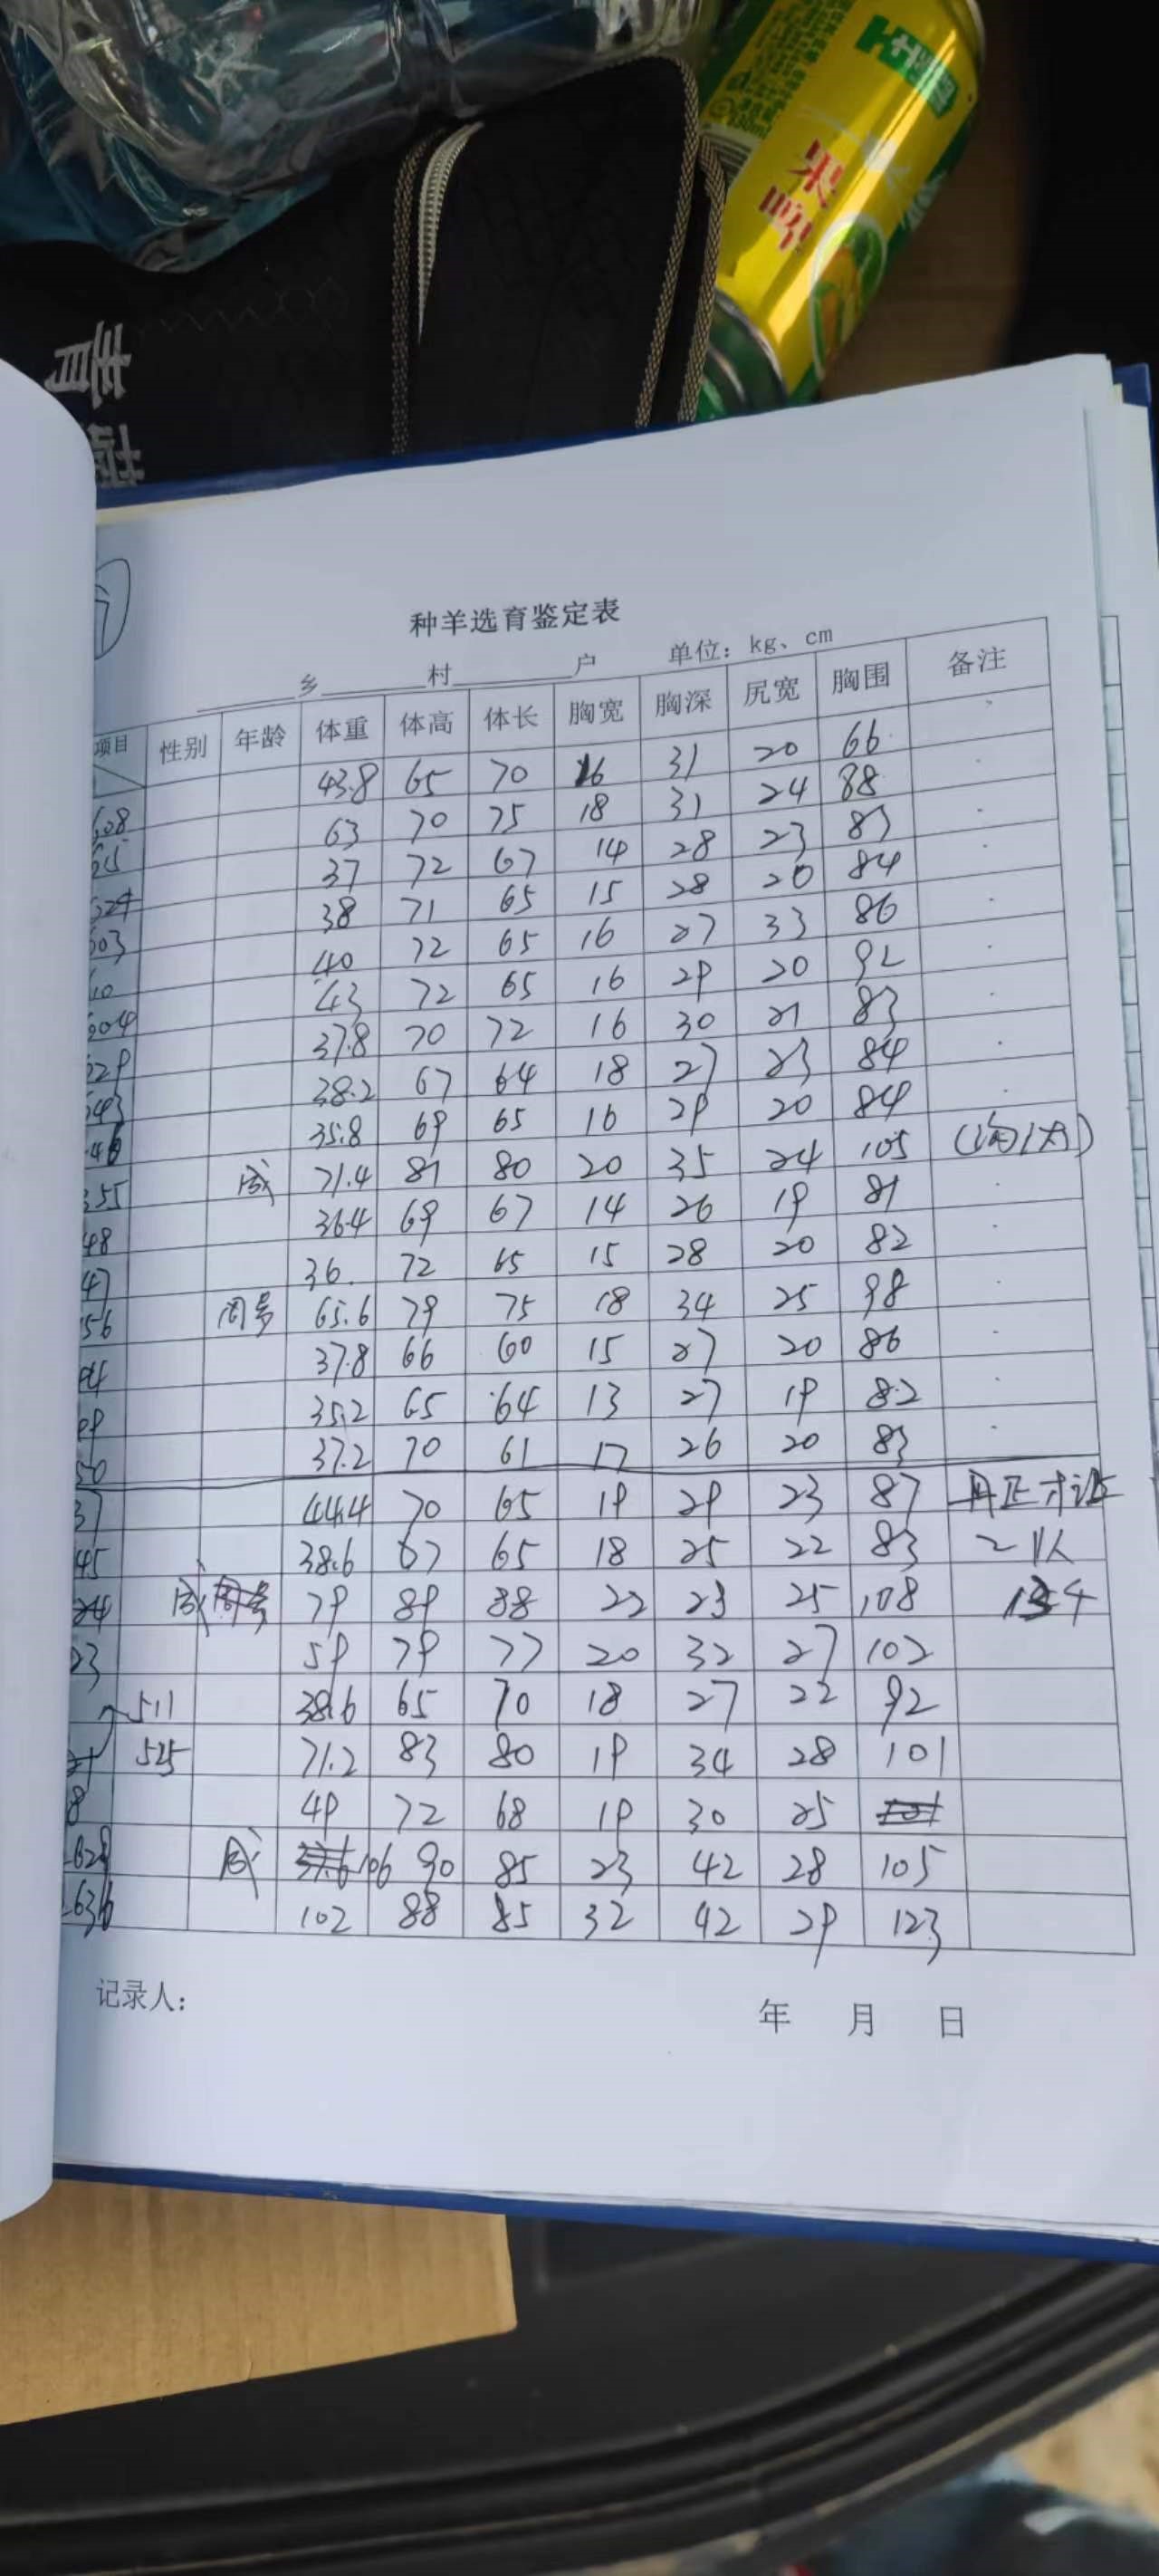 果啤
青
种羊选育鉴定表
乡 村 户 单位: kg、cm
项目 性别 年龄 体重 体高 体长 胸宽 胸深 尻宽 胸围 备注
43.8 65 70 16 31 20 66
608 63 70 75 18 31 24 88
37 72 67 14 28 23 83
38 71 65 15 28 20 84
603 40 72 65 16 27 33 86
10 43 72 65 16 29 20 92
604 37.8 70 72 16 30 21 83
629 38.2 67 64 18 27 23 84
35.8 69 65 16 29 20 84
成 71.4 81 80 20 35 24 105
48 36.4 69 67 14 26 19 81
47 36. 72 65 15 28 20 82
56 周岁 65.6 79 75 18 34 25 98
37.8 66 60 15 27 20 86
35.2 65 64 13 27 19 82
50 37.2 70 61 17 26 20 83
37 44.4 70 65 19 29 23 87
45 38.6 67 65 18 25 22 83
成 79 89 88 22 23 25 108
23 59 79 77 20 32 27 102
511 38.6 65 70 18 27 22 92
525 71.2 83 80 19 34 28 101
8 49 72 68 19 30 25
成 106 90 85 23 42 28 105
636 102 88 85 32 42 29 123
记录人:
年 月 日